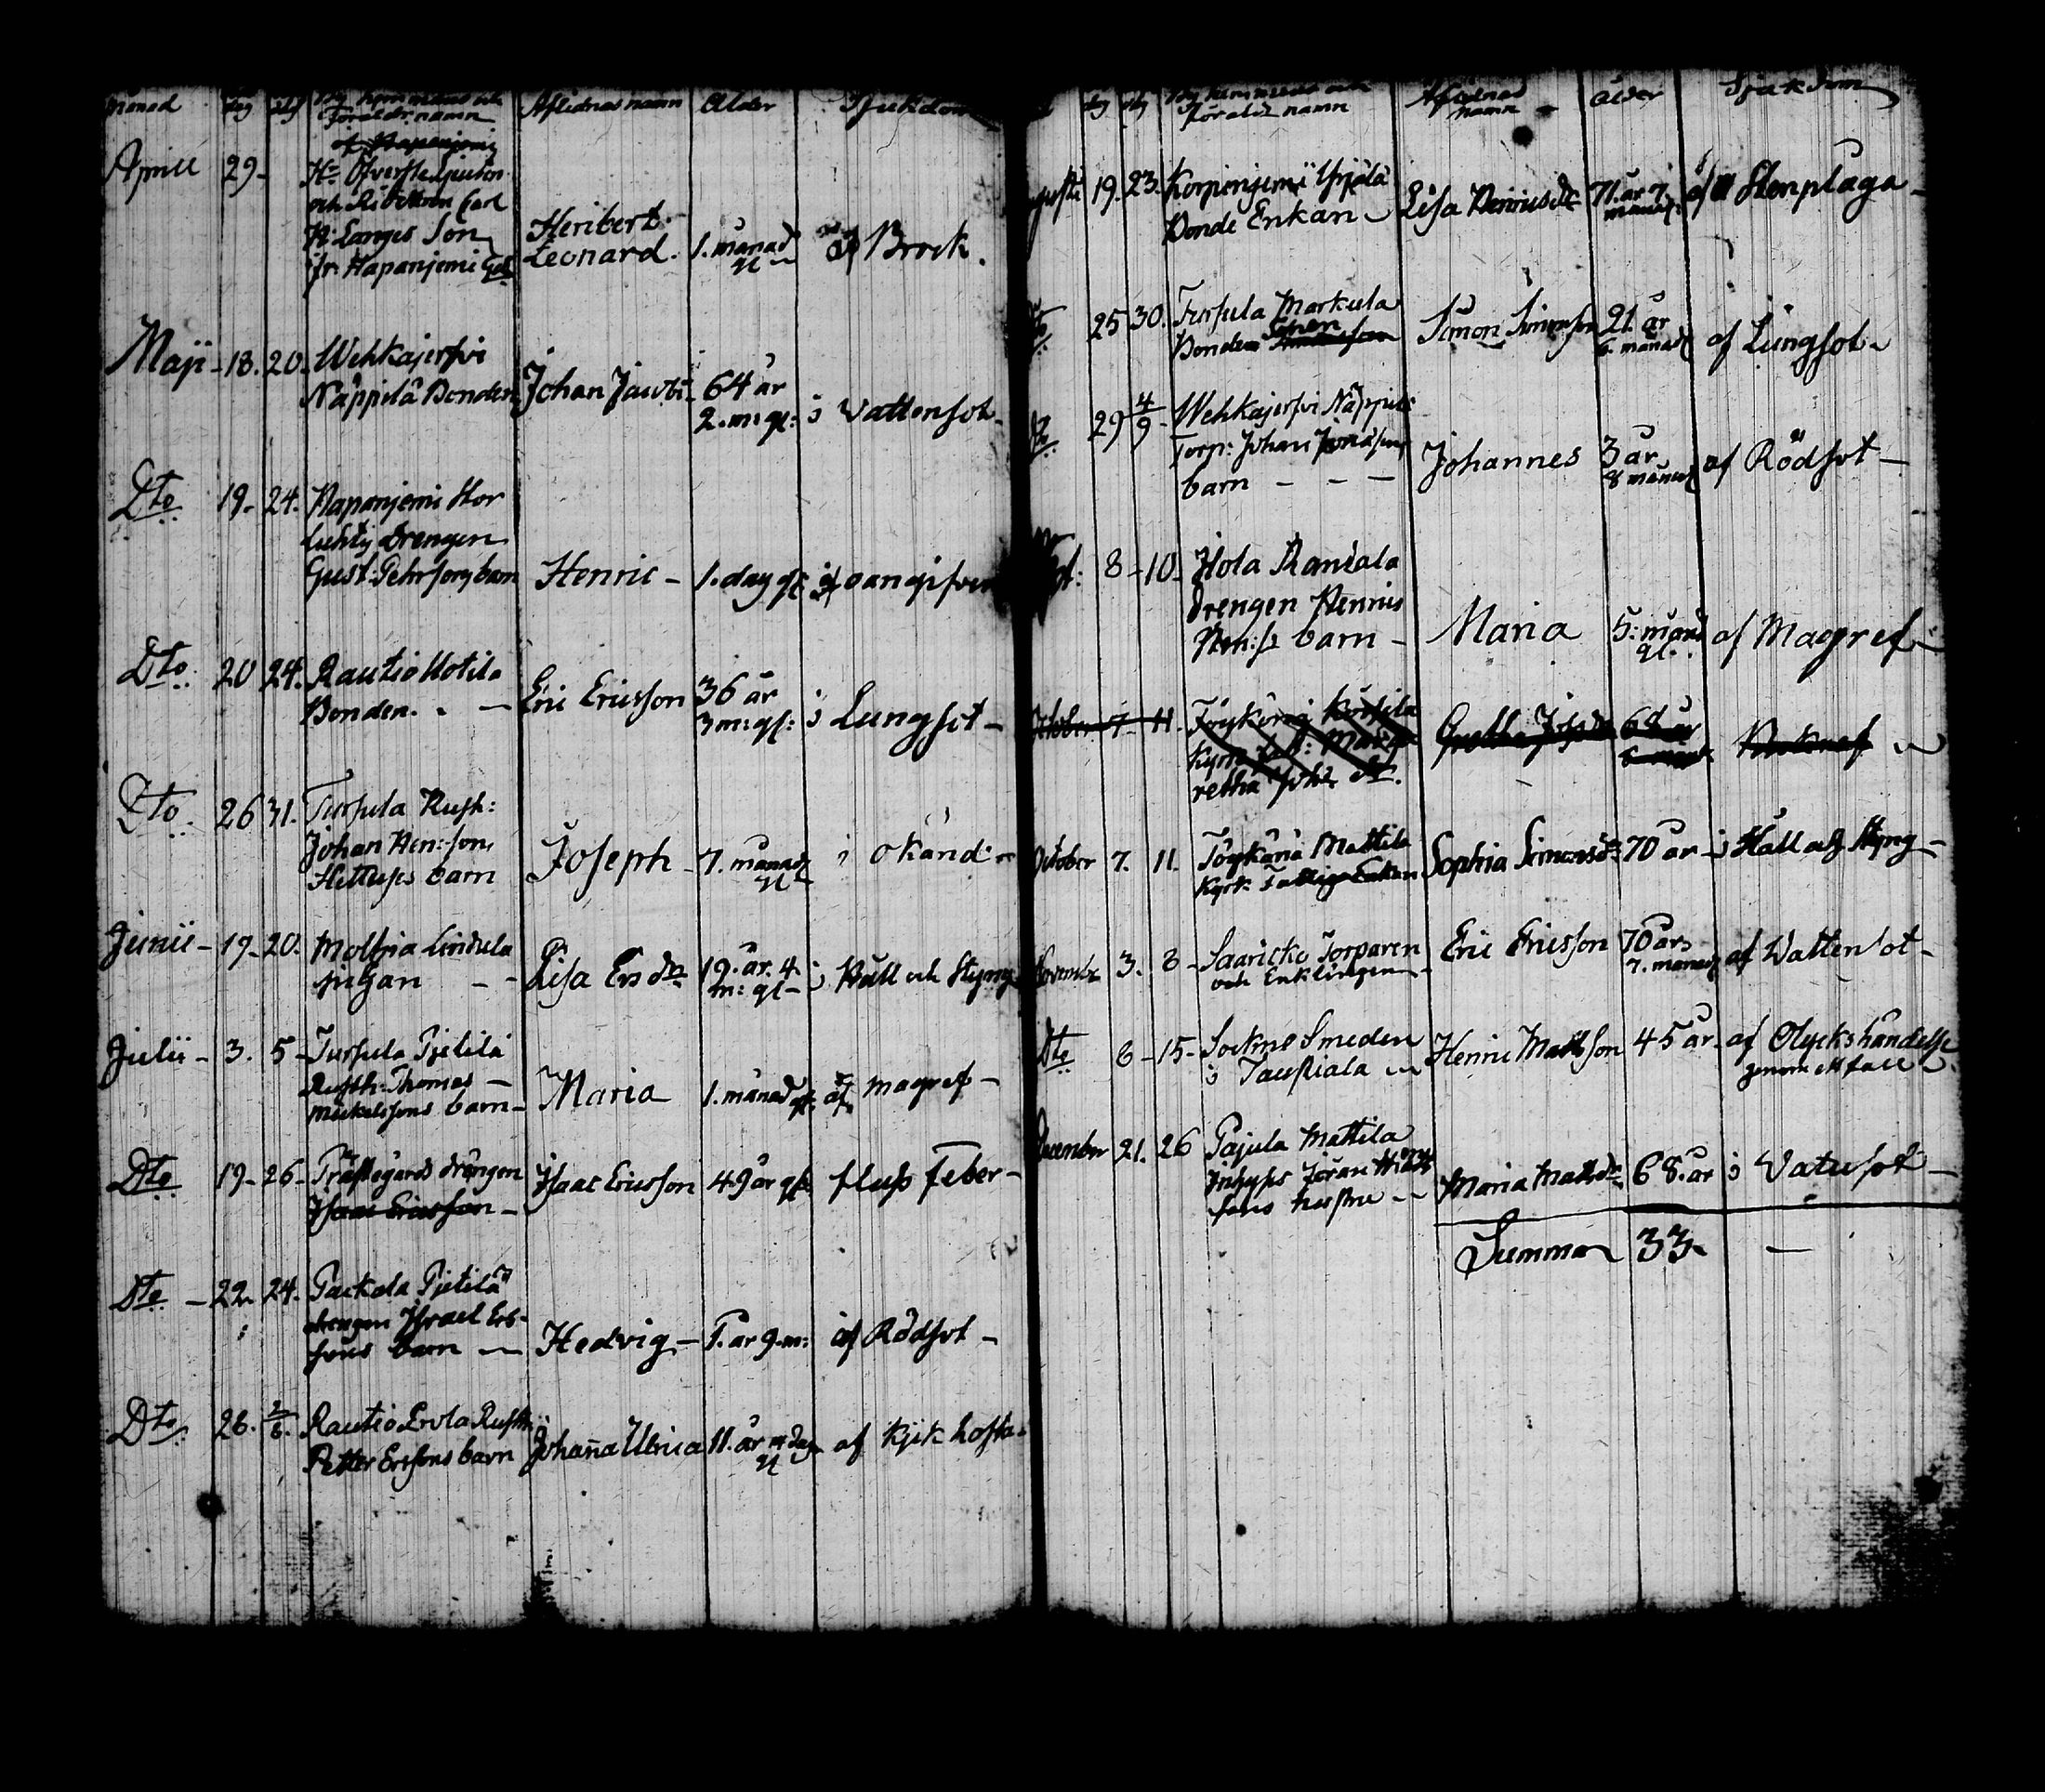 Månad dag dag Förældr. namn Aflidnas namn Ålder Sjukdom
Aprill 29-
Hr Öfverste Lieutn.
och Riddaren Carl
H: Langes Son
fr: Hapanjemi Gd
Heribert
Leonard. 1. månad
gl af Bråck.
Maji - 18. 20. Wehkajerfvi
Näppilä Bonden Johan Jacobs. 64 år
2. m: gl: i Vattensot-
Dto 19- 24. Hapanjemi Stor
Luhty Drengen
Gust: Pehrsons barn Henric - 1. dag gl: af oangifven
Dto 20 24. Rautio Uotila
Bonden. - Eric Ericsson 36 år
3 m: gl: i Lungsot -
Dto 26 31. Tursula Rusth:
Johan Hen:sons
barn Joseph 7. månad
gl i okänd
Junii - 19- 20. Moltzia Lindula
pigan - - Lisa Ersdr 19. år. 4.
m: gl - i Håll och Styng
Julii - 3. 5 - Tursula Pietilä
Rusth: Thomas -
Mickelssons barn - Maria 1. månad gl. af magref -
Dto 19- 26- Prästegårds drängen
Isaac Ericsson - Isaac Ericsson 49 år gl. fluss feber -
Dto - 22. 24. Packala Pietilä
drengen Israel Ers-
sons barn - Hedvig - 1. år 9. m: af Rödsot -
Dto 26. 2/8. Rautio Erola Rusth:
Petter Ersons barn Johanna Ulrica 11. år
gl af kjikhosta.
dag dag Föräld namn Aflidnas
namn - ålder Sjukdom
19. 23. Korpenjemi Yrjälä
Bonde Enkan - Lisa Henricsdr 71. år 7
månad: af Stenplåga -
25 30. Tursula Markula
Bonden Sonen Simon Simonson 21. år
6. månad af Lungsot -
29 4/9 - Wehkajerfvi Näppilä
Torp: Johan
barn - - - Johannes 3 år
8 månad af Rödsot -
8 - 10. Hola Raniala
drengen Henric
Hen:s barn - Maria 5: mån
gl. af Magref -
October 7. 11.
October 7. 11. Töykänä Mattila
Kyrk: Fattige Enkan Sophia Simonsdr 70 år - i Håll och Styng -
November 3. 8 - Saaricko Torparen
och Enklingen - Eric Ericsson 70 år
7. månad af Vattensot -
Dto 6 - 15 - Sockne Smeden
i Tauriala - Henric Mattsson 45 år - af Olyckshändelse
genom ett fall -
December 21. 26 Pajula Mattila
Inhyses Jöran
sons hustru - - Maria Mattsdr 68. år i Vatusot -
Summa 33. -